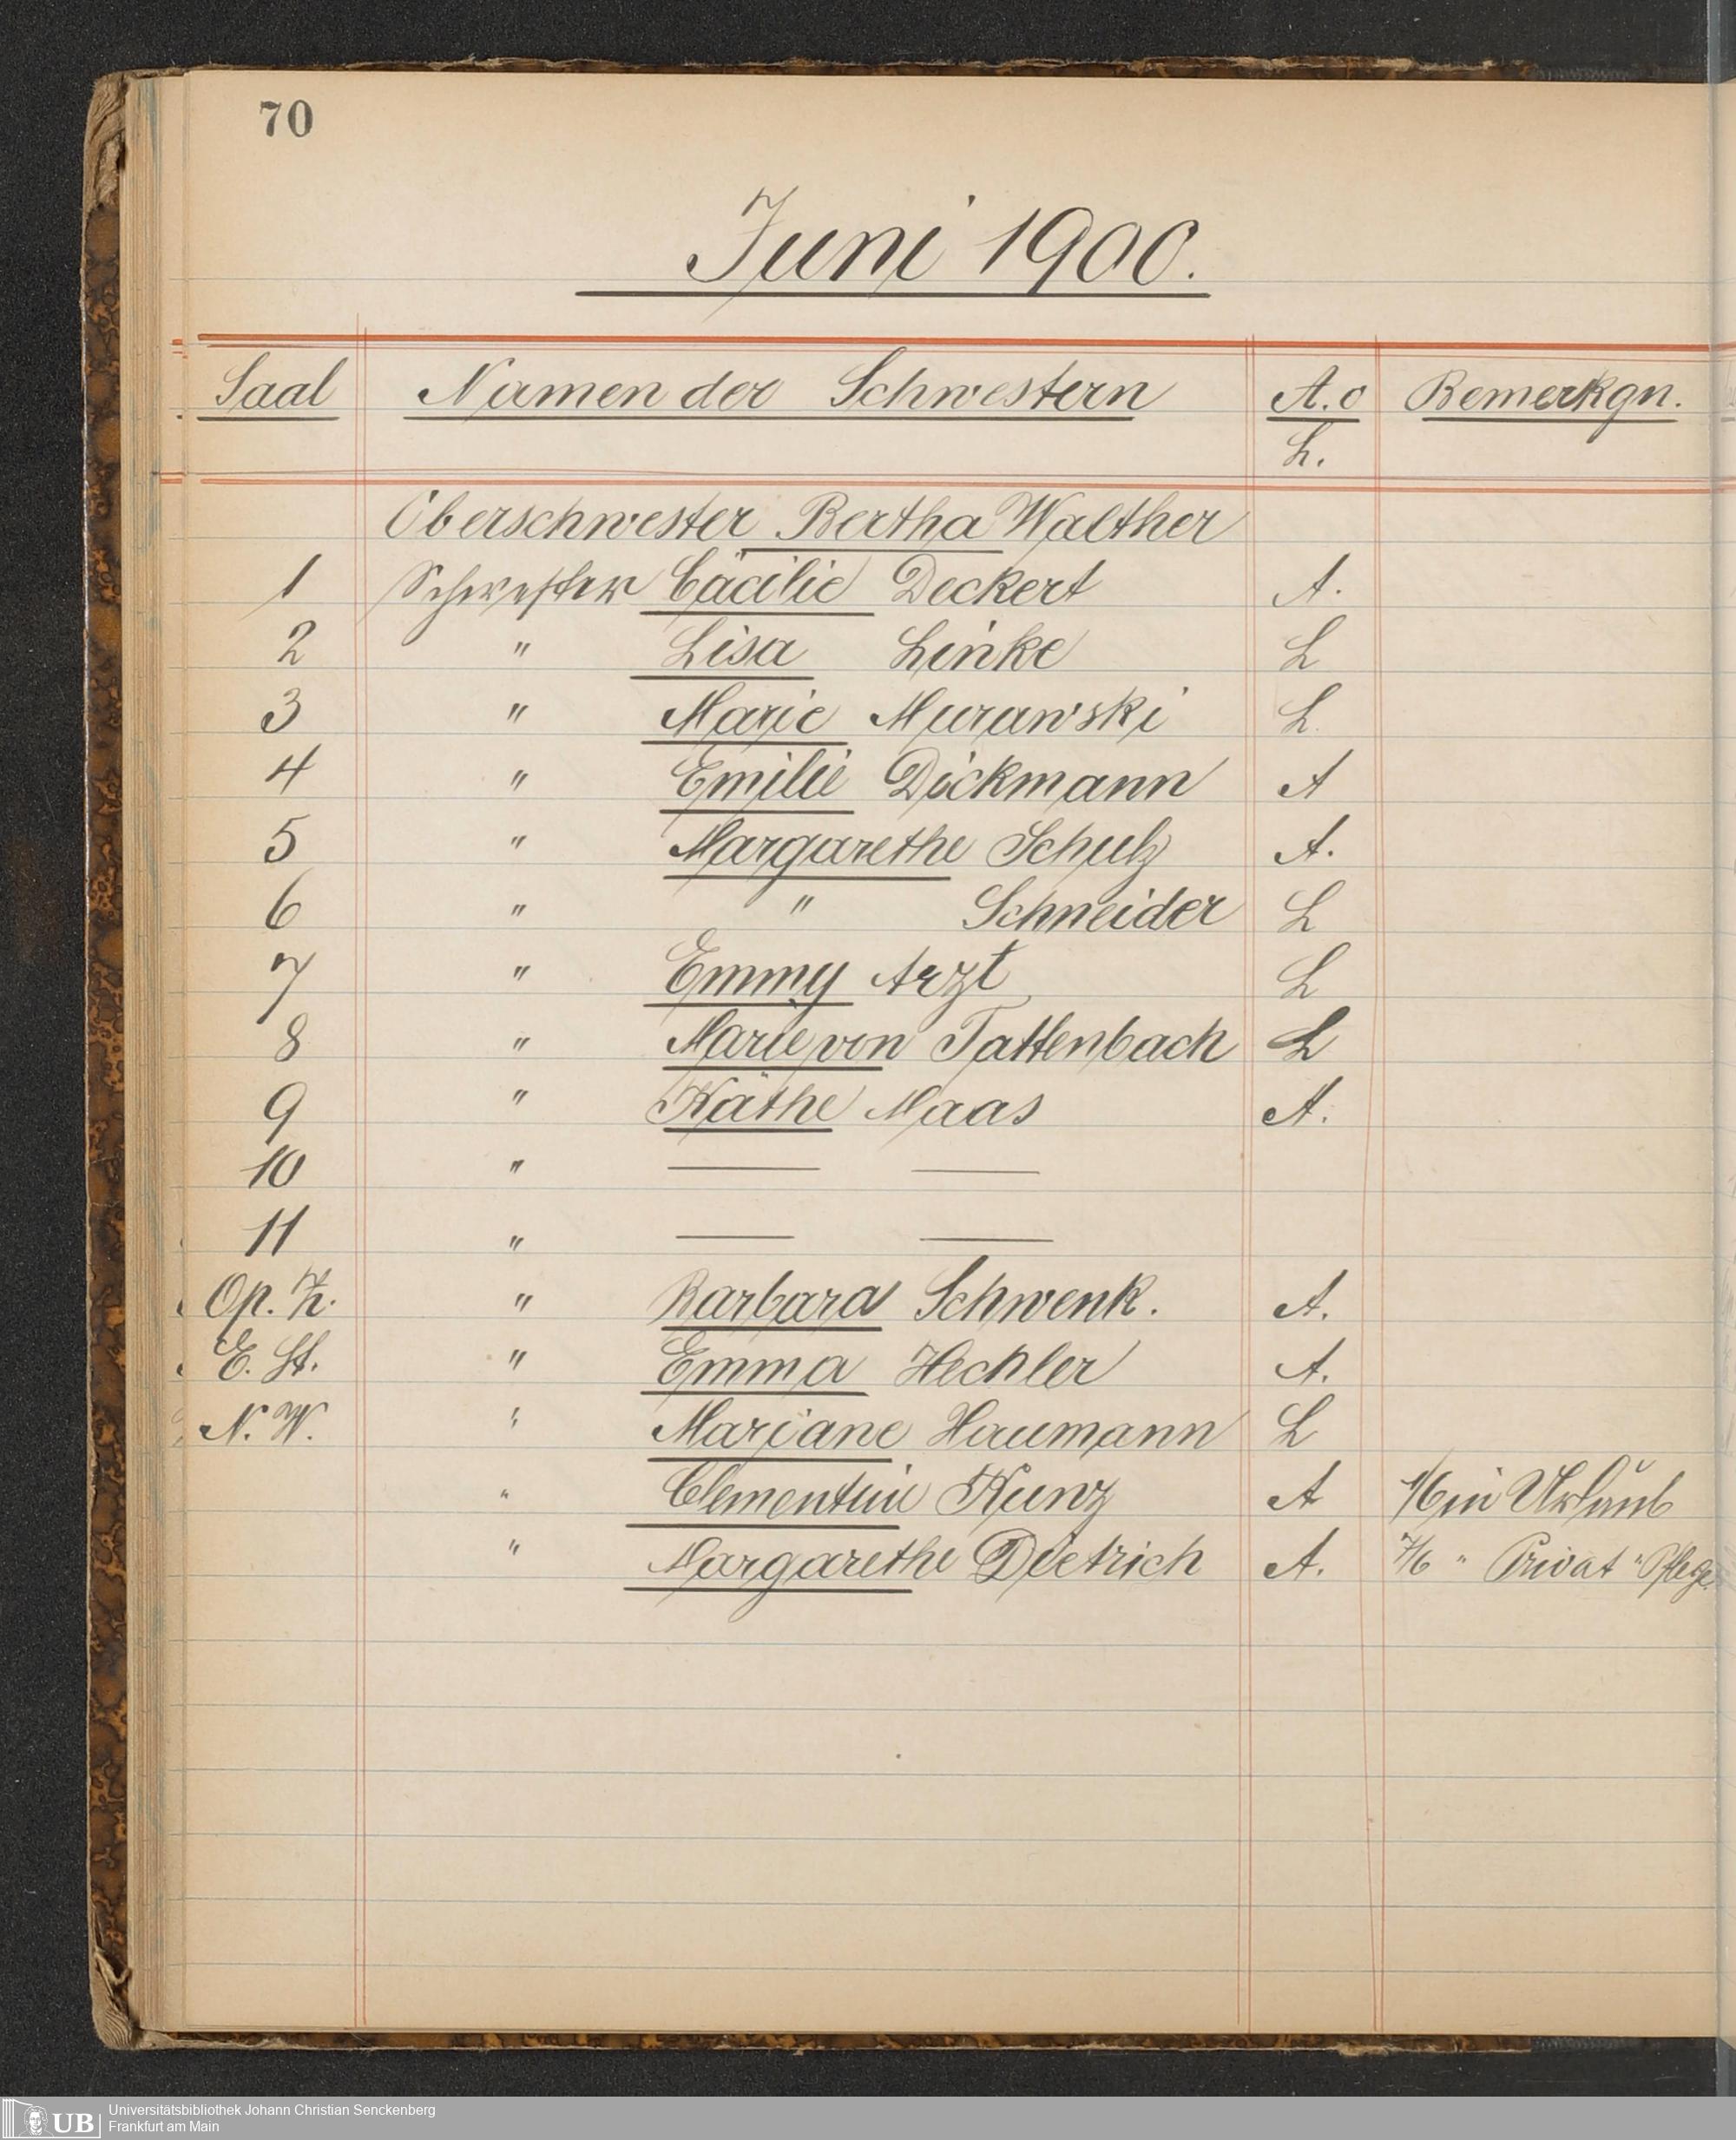 70
Juni 1900.
Saal Namen der Schwestern A. o Bemerkgn.
L.
Oberschwester Bertha Walther
1 Schwester Cäcilie Deckert A.
2 " Lisa Linke L
3 " Marie Murawski L.
4 " Emilie Dickmann A
5 " Margarethe Schulz A.
6 " " Schneider L
7 " Emmy Arzt L
8 " Marie von Tattenbach L
9 " Käthe Maas A.
10 " — —
11 " — —
Op. Z. " Barbara Schwenk. A.
E. St. " Emma Hechler A.
N. W. " Mariane Haumann L
" Clementine Kunz A 1/6 in Urlaub
" Margarethe Dietrich A. 7/6 " Privat " Pflege.
UB Universitätsbibliothek Johann Christian Senckenberg
Frankfurt am Main